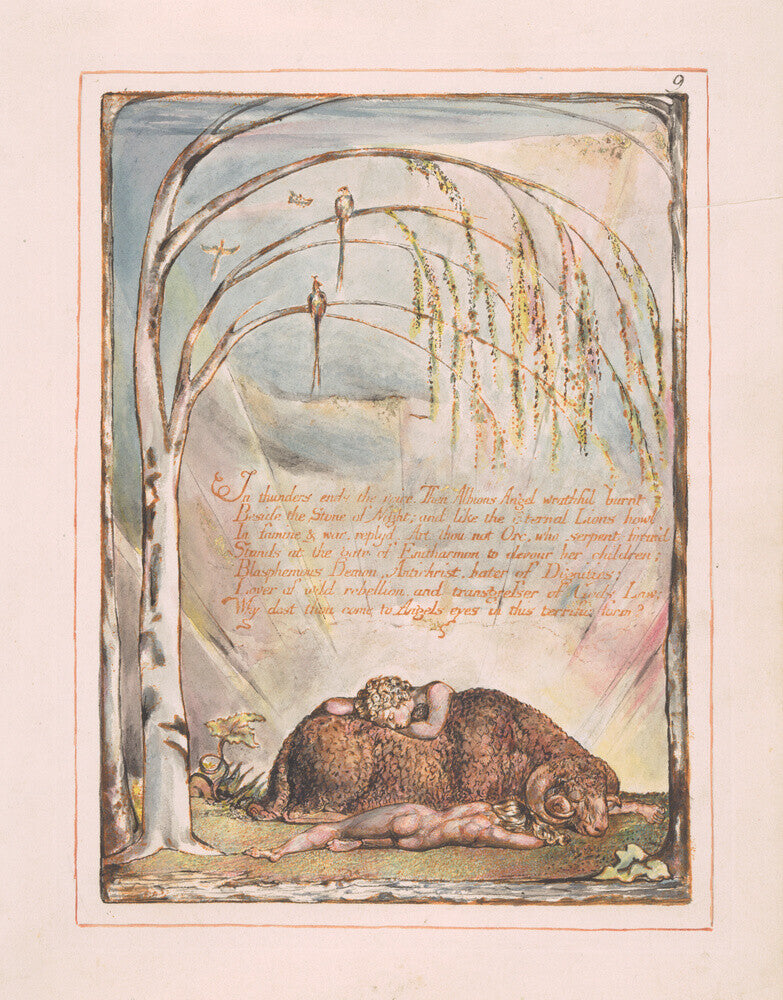 9
In thunders ends the voice. Then Albions Angel wrathful burnt
Beside the Stone of Night; and like the Eternal Lions howl
In famine & war, reply'd. Art thou not Orc, who serpent form'd
Stands at the gate of Enitharmon to devour her children;
Blasphemous Demon, Antichrist, hater of Dignities;
Lover of wild rebellion, and transgresser of Gods Law;
Why dost thou come to Angels eyes in this terrific form?